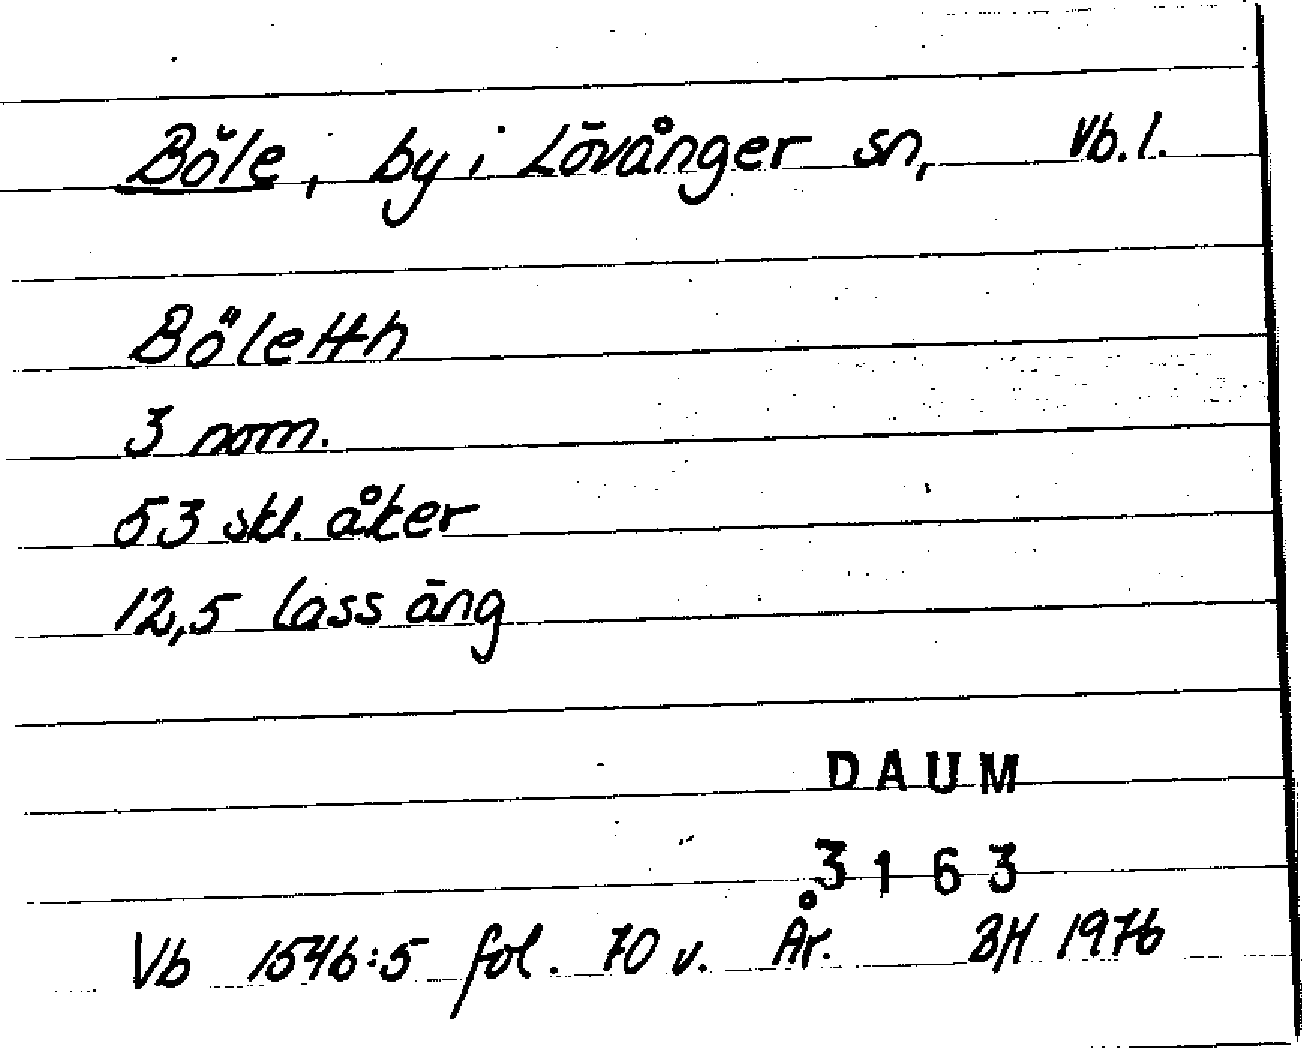 Böle, by i Lövånger sn, Vb.l.
Böletth
3 nom.
53 skl. åker
12,5 lass äng
DAUM
3163
Vb 1546:5 fol. 70 v. År. BH 1976